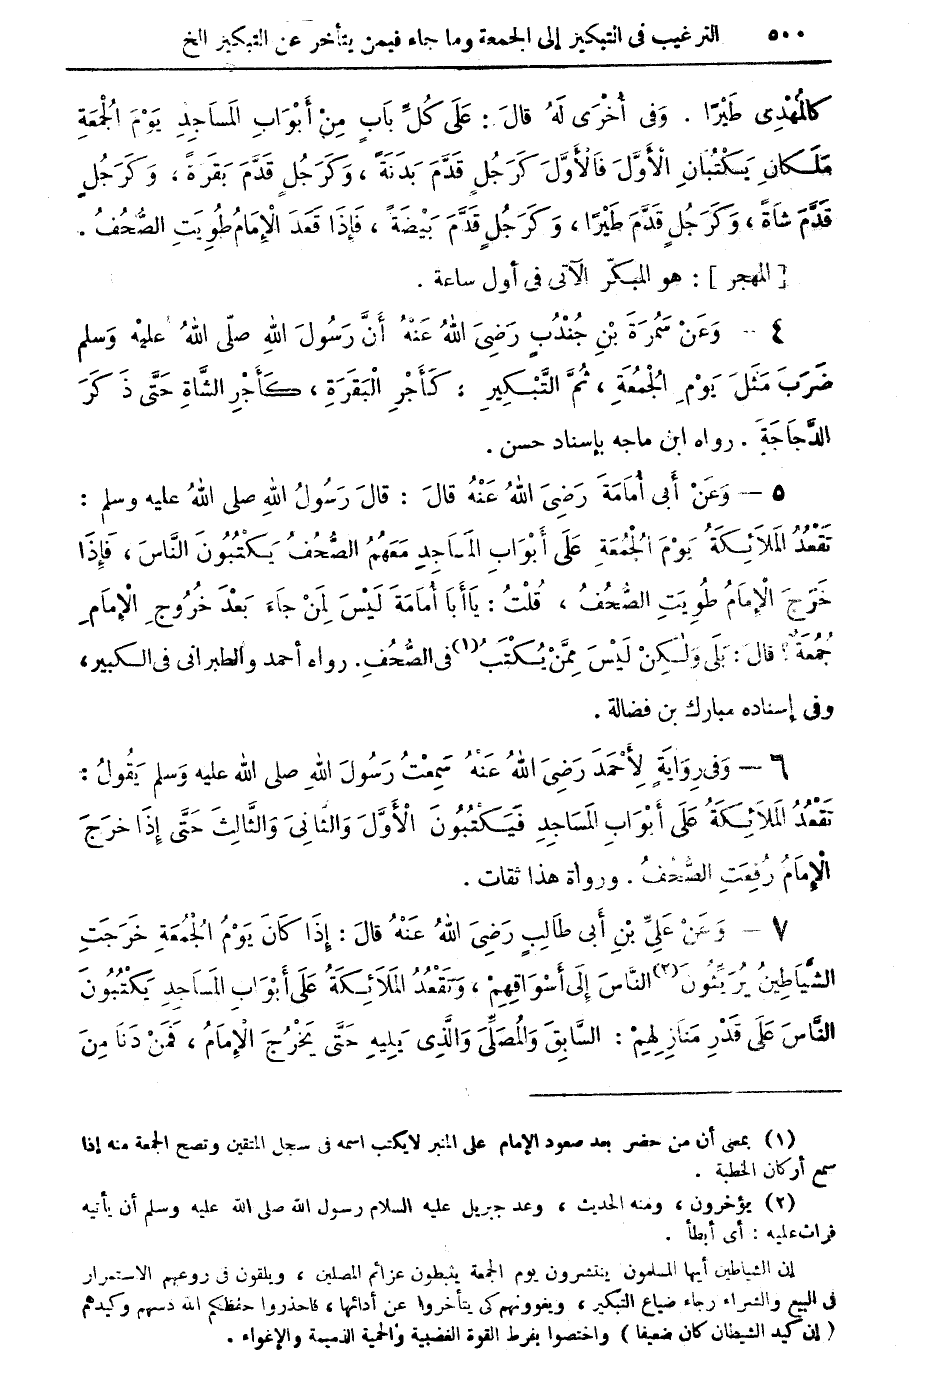 ٥٠٠ الترغيب فى التبكير إلى الجمعة وما جاء فيمن يتأخر عن التبكير الخ
كَالْمُهْدِى طَيْرًا . وَفِى أُخْرَى لَهُ قالَ : عَلَى كُلِّ بابٍ مِنْ أَبْوَابِ المَسَاجِدِ يَوْمَ الْجُمُعَةِ
مَلَكانِ يَكْتُبانِ الْأَوَّلَ فَالْأَوَّلَ كَرَجُلٍ قَدَّمَ بَدَنَةً ، وَكَرَجُلٍ قَدَّمَ بَقَرَةً ، وَكَرَجُلٍ
قَدَّمَ شَاةً ، وَكَرَجُلٍ قَدَّمَ طَيْرًا ، وَكَرَجُلٍ قَدَّمَ بَيْضَةً ، فَإِذَا قَعَدَ الْإِمَامُ طُوِيَتِ الصُّحُفُ .
[ المهجر ] : هو المبكّر الآتى فى أول ساعة .
٤ — وَعَنْ سَمُرَةَ بْنِ جُنْدُبٍ رَضِىَ اللهُ عَنْهُ أَنَّ رَسُولَ اللهِ صلّى اللهُ عليْه وَسلم
ضَرَبَ مَثَلَ يَوْمِ الْجُمُعَةِ ، ثُمَّ التَّبْكِيرِ : كَأَجْرِ الْبَقَرَةِ ، كَأَجْرِ الشَّاةِ حَتَّى ذَكَرَ
الدَّجَاجَةَ . رواه ابن ماجه بإسناد حسن .
٥ — وَعَنْ أَبى أُمَامَةَ رَضِىَ اللهُ عَنْهُ قالَ : قالَ رَسُولُ اللهِ صلى اللهُ عليه وسلم :
تَقْعُدُ المَلَائِكَةُ يَوْمَ الْجُمُعَةِ عَلَى أَبْوَابِ المَسَاجِدِ مَعَهُمُ الصُّحُفُ يَكْتُبُونَ النَّاسَ ، فَإِذَا
خَرَجَ الْإِمَامُ طُوِيَتِ الصُّحُفُ ، قُلْتُ : يَاأَبَا أُمَامَةَ لَيْسَ لِمَنْ جَاءَ بَعْدَ خُرُوجِ الْإِمَامِ
جُمُعَةٌ ؟ قالَ : بَلَى وَلٰكِنْ لَيْسَ مِمَّنْ يُكْتَبُ (١) فى الصُّحُفِ . رواه أحمد والطبرانى فى الكبير ،
وفى إسناده مبارك بن فضالة .
٦ — وَفِى رِوَايَةٍ لِأَحْمَدَ رَضِىَ اللهُ عَنْهُ سَمِعْتُ رَسُولَ اللهِ صلى الله عليه وسلم يَقُولُ :
تَقْعُدُ المَلَائِكَةُ عَلَى أَبْوَابِ المَسَاجِدِ فَيَكْتُبُونَ الْأَوَّلَ وَالثَّانِىَ وَالثَّالِثَ حَتَّى إِذَا خَرَجَ
الْإِمَامُ رُفِعَتِ الصُّحُفُ . ورواة هذا ثقات .
٧ — وَعَنْ عَلِيِّ بْنِ أَبى طَالِبٍ رَضِىَ اللهُ عَنْهُ قالَ : إِذَا كَانَ يَوْمُ الْجُمُعَةِ خَرَجَتِ
الشَّيَاطِينُ يُرَيِّثُونَ (٢) النَّاسَ إِلَى أَسْوَاقِهِمْ ، وَتَقْعُدُ المَلَائِكَةُ عَلَى أَبْوَابِ المَسَاجِدِ يَكْتُبُونَ
النَّاسَ عَلَى قَدْرِ مَنَازِلِهِمْ : السَّابِقَ وَالْمُصَلِّىَ وَالَّذِى يَلِيهِ حَتَّى يَخْرُجَ الْإِمَامُ ، فَمَنْ دَنَا مِنَ
(١) بمعنى أن من حضر بعد صعود الإمام على المنبر لايكتب اسمه فى سجل المتقين وتصح الجمعة منه إذا
سمع أركان الخطبة .
(٢) يؤخرون ، ومنه الحديث ، وعد جبريل عليه السلام رسول الله صلى الله عليه وسلم أن يأتيه
فراث عليه : أى أبطأ .
إن الشياطين أيها المسلمون ينتشرون يوم الجمعة يثبطون عزائم المصلين ، ويلقون فى روعهم الاستمرار
فى البيع والشراء رجاء ضياع التبكير ، ويغوونهم كى يتأخروا عن أدائها ، فاحذروا حفظكم الله دسهم وكيدهم
( إن كيد الشيطان كان ضعيفا ) واختصوا بفرط القوة الغضبية والحمية الذميمة والإغواء .